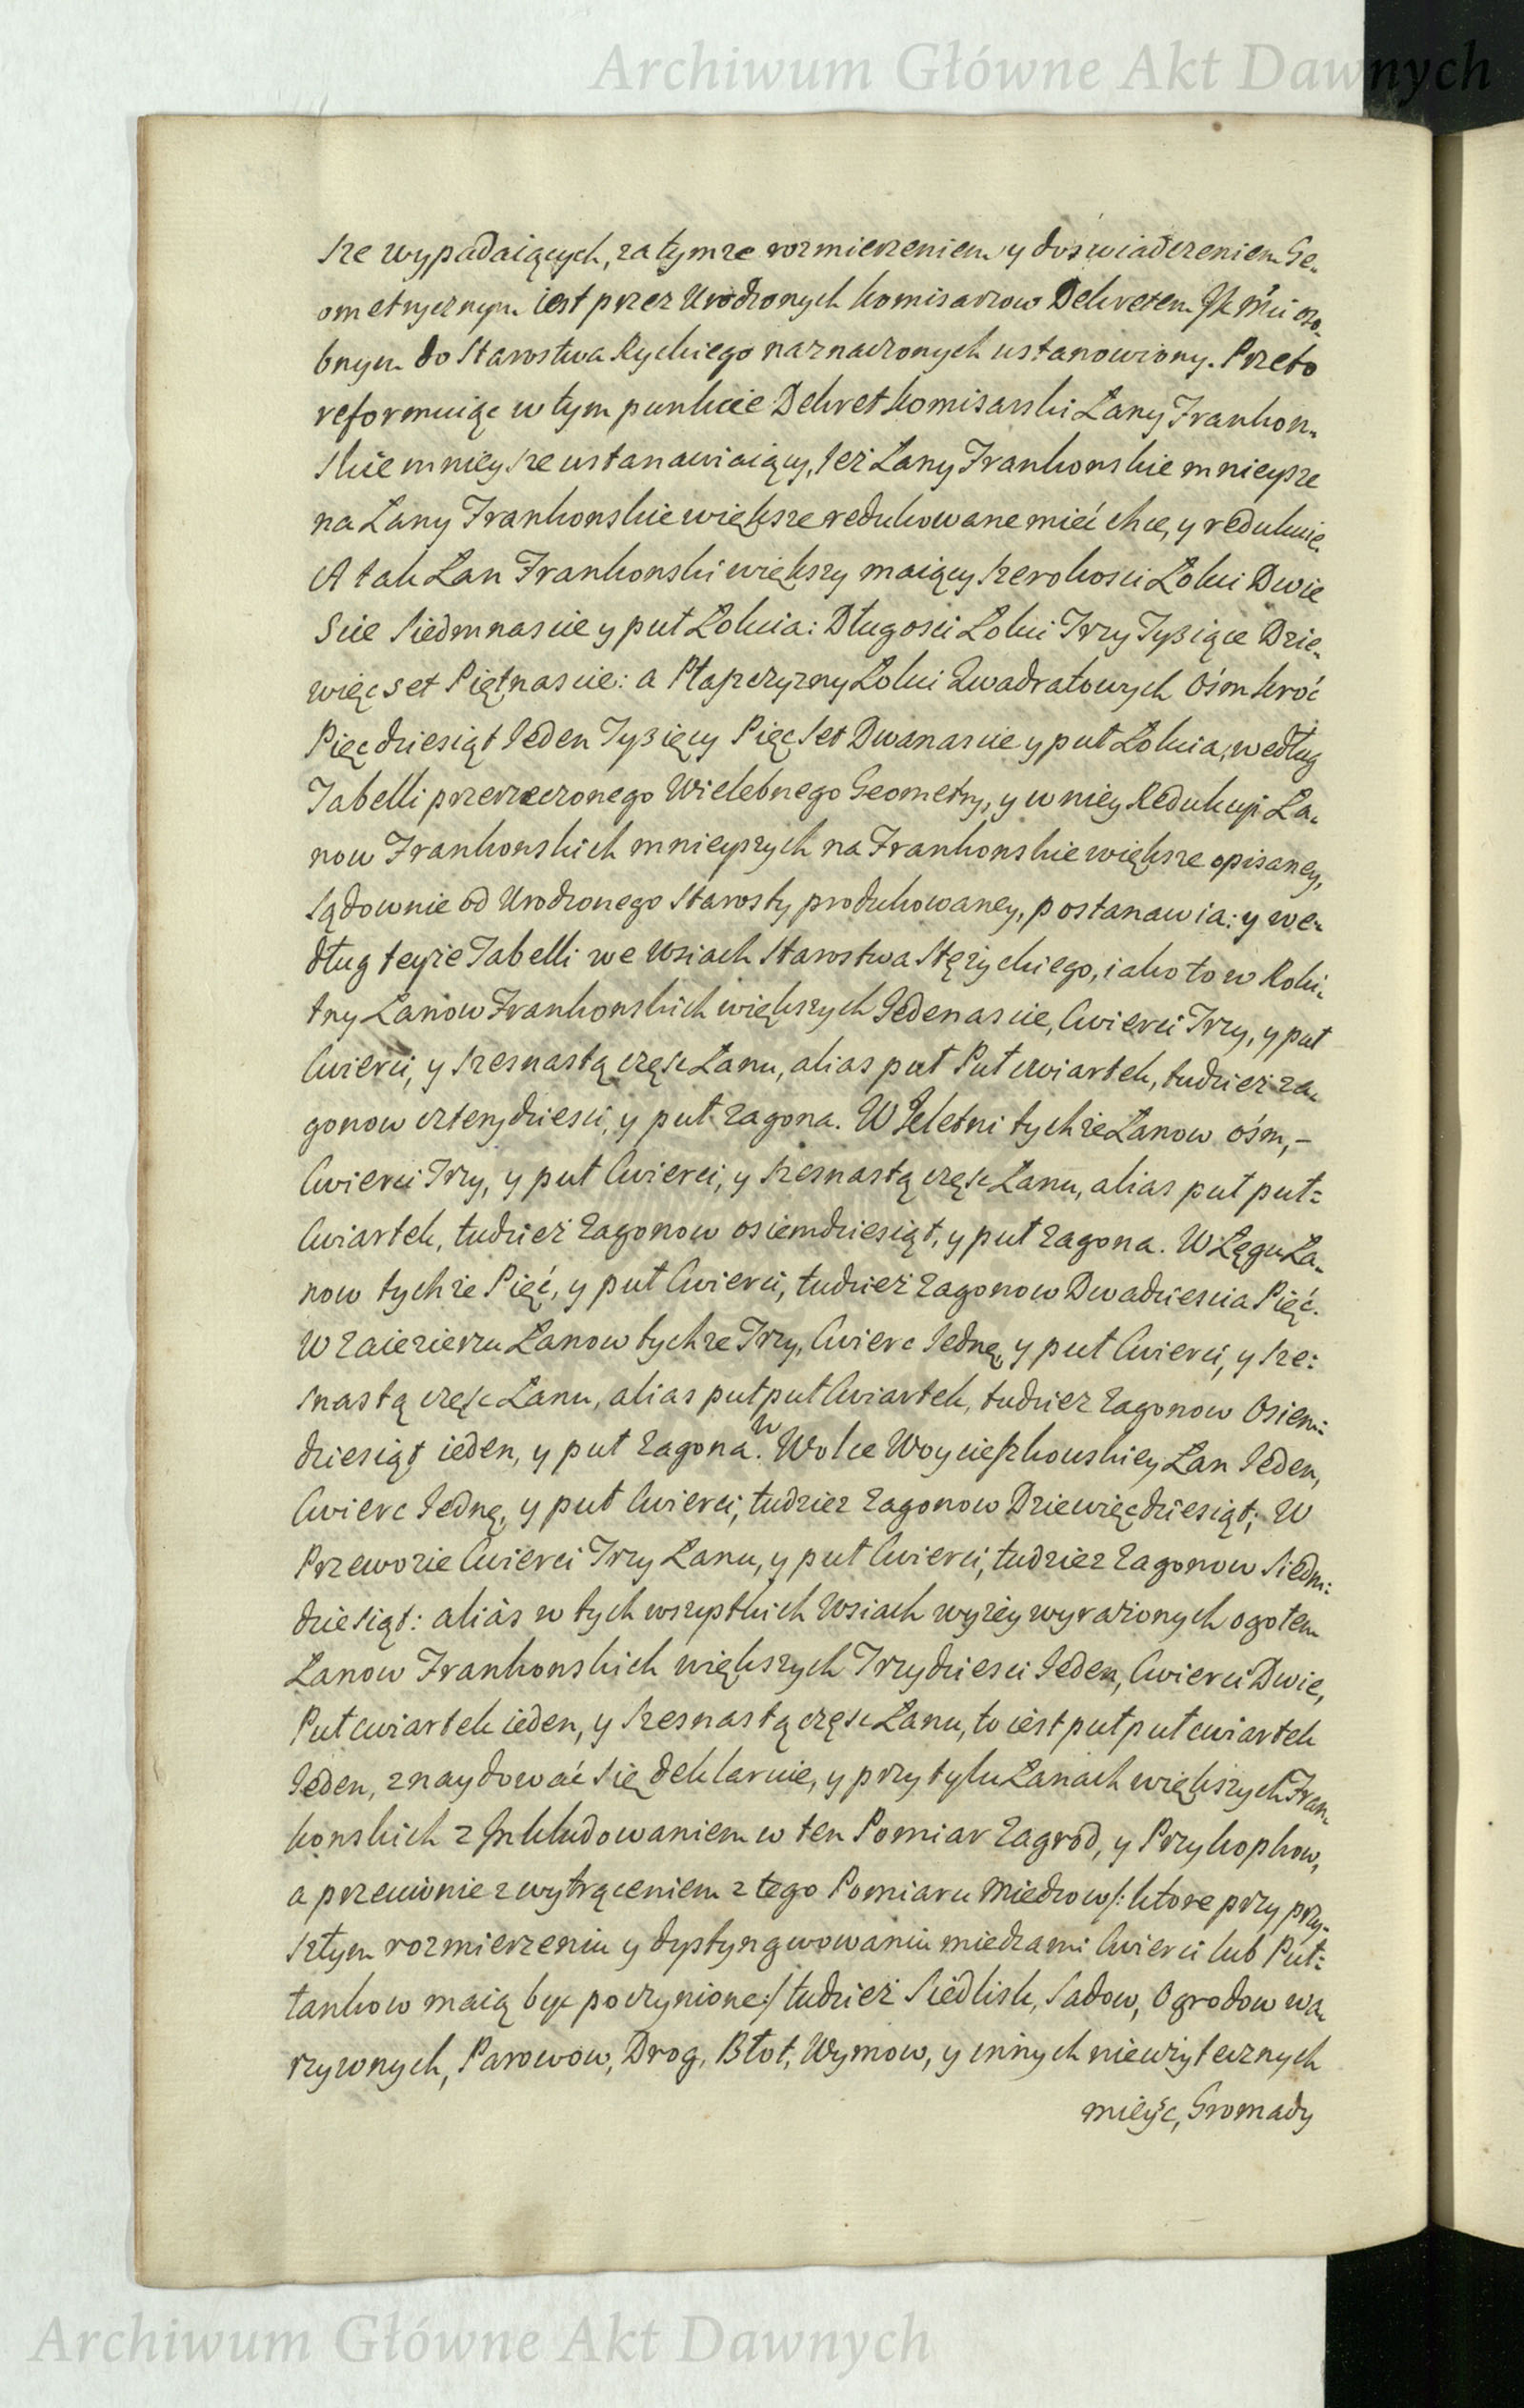 Archiwum Główne Akt Dawnych
sze wypadaiących, za tymże rozmierzeniem y doświadczeniem Ge-
ometrycznym iest przez Urodzonych Komisarzow Dekretem JK Mci oso-
bnym do Starostwa Ryckiego naznaczonych ustanowiony. Przeto
reformuiąc w tym punkcie Dekret Komisarski Łany Frankon-
skie mnieysze ustanawiaiący, też Łany Frankonskie mnieysze
na Łany Frankonskie większe redukowane mieć chce, y redukuie.
A tak Łan Frankonski większy maiący szerokosci Łokci Dwie
Scie Siedmnascie y puł Łokcia: Długosci Łokci Trzy Tysiące Dzie-
więcset Piętnascie: a Płaszczyzny Łokci Quadratowych Ośmkroć
Pięcdziesiąt Jeden Tysięcy Pięcset Dwanascie y puł Łokcia, według
Tabelli przerzeczonego Wielebnego Geometry, y w niey Redukcyi Ła-
now Frankonskich mnieyszych na Frankonskie większe opisaney,
sądownie od Urodzonego Starosty produkowaney, postanawia: y we-
dług teyże Tabelli we Wsiach Starostwa Stężyckiego, iako to w Roki-
tny Łanow Frankonskich większych Jedenascie, Cwierci Trzy, y puł
Cwierci, y szesnastą częsc Łanu, alias puł Puł cwiartek, tudzież za-
gonow czterydziesci, y puł zagona. W Jeletni tychże Łanow ośm,-
Cwierci Trzy, y puł Cwierci, y szesnastą częsc Łanu, alias puł puł=
Cwiartek, tudzież zagonow osiemdziesiąt, y puł zagona. W Łęgu Ła-
now tychże Pięć, y puł Cwierci, tudzież zagonow Dwadziescia Pięć.
W Zaiezierzu Łanow tychże Trzy, Cwierc Jednę, y puł Cwierci, y sze=
snastą częsc Łanu, alias puł puł Cwiartek, tudzież zagonow Osiem=
dziesiąt ieden, y puł zagona. W Wolce Woycieszkowskiey Łan Jeden,
Cwierc Jednę, y puł Cwierci, tudzież zagonow Dziewięcdziesiąt; W
Przewozie Cwierci Trzy Łanu, y puł Cwierci, tudzież zagonow Siedm=
dziesiąt: aliàs w tych wszystkich Wsiach wyżey wyrażonych ogołem
Łanow Frankonskich większych Trzydziesci Jeden, Cwierci Dwie,
Puł cwiartek ieden, y szesnastą częsc Łanu, to iest puł puł cwiartek
Jeden, znaydować się deklaruie, y przy tylu Łanach większych Fran-
konskich z Inkludowaniem w ten Pomiar zagrod, y Przykopkow,
a przeciwnie z wytrąceniem z tego Pomiaru Miedzow /: ktore przy przy-
szłym rozmierzeniu y dystyngwowaniu miedzami Cwierci lub Puł=
łankow maią byc poczynione:/ tudzież Siedlisk, Sadow, Ogrodow wa-
rzywnych, Parowow, Drog, Błot, Wymow, y innych nieużytecznych
mieysc, Gromady
Archiwum Główne Akt Dawnych